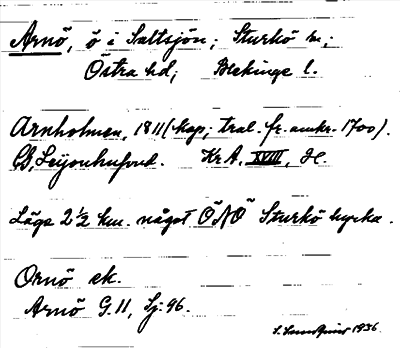 Arnö, ö i Saltsjön; Sturkö sn;
Östra hd; Blekinge l.
Arnholmen, 1811 (kap; tral. fr. omkr. 1700).
CG, Leijonhufvud. Kr.A. XVIII, H.
Läge 2 1/2 km. något ÖNÖ Sturkö kyrka.
Ornö ek.
Arnö G. 11, Sj: 96.
1936